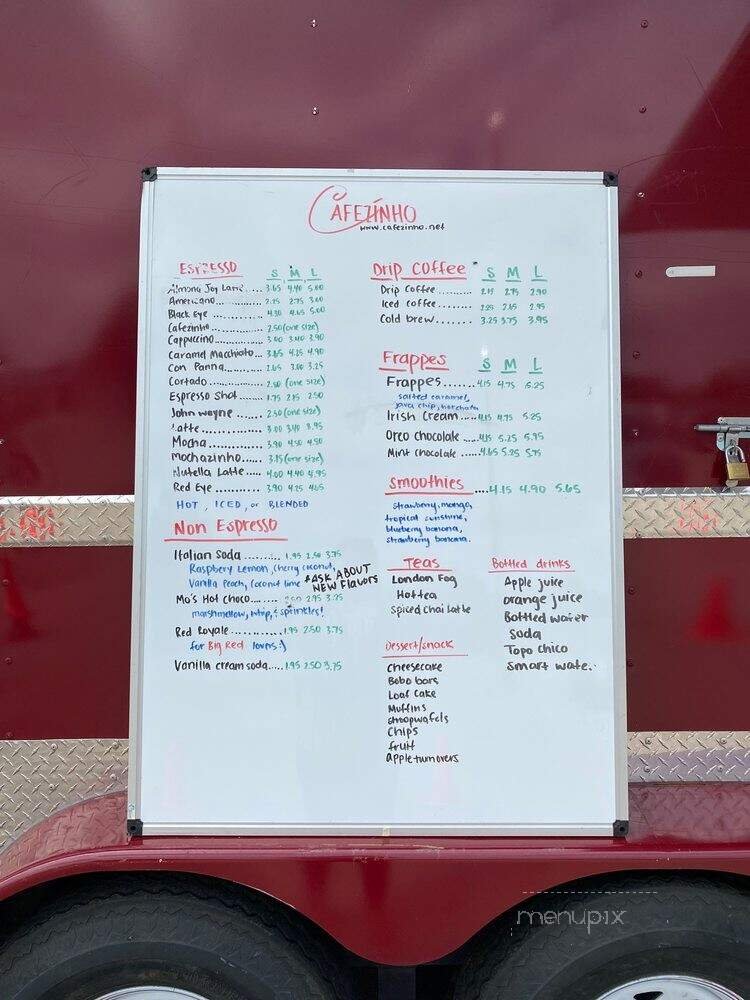 CAFEZINHO
www.cafezinho.net
ESPRESSO S M L
Almond Joy Latte.... 3.65 4.40 5.00
Americano............ 2.25 2.75 3.00
Black Eye ............ 4.30 4.65 5.00
Cafezinho............ 2.50 (one size)
Cappuccino........... 3.00 3.40 3.90
Caramel Macchiato... 3.65 4.25 4.90
Con Panna.......... 2.65 3.00 3.25
Cortado............... 2.50 (one size)
Espresso Shot........ 1.75 2.15 2.50
John Wayne......... 2.50 (one size)
Latte............... 3.00 3.40 3.95
Mocha............... 3.90 4.50 4.50
Mochazinho....... 3.15 (one size)
Nutella Latte..... 4.00 4.40 4.95
Red Eye ............ 3.90 4.25 4.65
HOT, ICED, or BLENDED
Non Espresso
Italian Soda .......... 1.95 2.50 3.75
Raspbery Lemon, Cherry Coconut,
Vanilla Peach, Coconut lime * ASK ABOUT
NEW FLAVORS
Mo's Hot choco.... 2.95 3.25
marshmellow, whip, & sprinkles!
Red Royale ............ 1.95 2.50 3.75
for Big Red lovers :)
Vanilla cream soda.... 1.95 2.50 3.75
Drip Coffee S M L
Drip Coffee .......... 2.15 2.75 2.90
Iced Coffee........ 2.25 2.65 2.95
Cold brew....... 3.25 3.75 3.95
Frappes S M L
Frappes....... 4.15 4.75 5.25
salted caramel,
java chip, horchata
Irish Cream..... 4.15 4.75 5.25
Oreo chocolate .... 4.15 5.25 5.95
Mint chocolate .... 4.65 5.25 5.75
Smoothies .... 4.15 4.90 5.65
strawberry, mango,
tropical sunshine,
blueberry banana,
strawberry banana.
Teas
London Fog
Hot tea
Spiced Chai Latte
Bottled drinks
Apple juice
orange juice
Bottled water
Soda
Topo chico
Smart wate.
Dessert/snack
Cheesecake
Bobo bars
Loaf Cake
Muffins
stroopwafels
Chips
fruit
apple turnovers
menupix